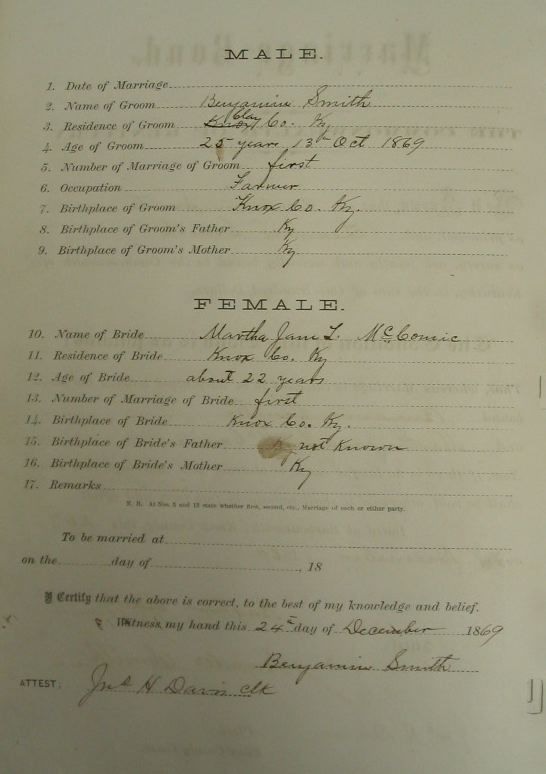 MALE.
1. Date of Marriage
2. Name of Groom Benjamin Smith
3. Residence of Groom Knox Clay Co. Ky
4. Age of Groom 25 years 13th Oct 1869
5. Number of Marriage of Groom first
6. Occupation Farmer
7. Birthplace of Groom Knox Co. Ky.
8. Birthplace of Groom's Father Ky
9. Birthplace of Groom's Mother Ky
FEMALE.
10. Name of Bride Martha Jane L. McComic
11. Residence of Bride Knox Co. Ky
12. Age of Bride about 22 years
13. Number of Marriage of Bride first
14. Birthplace of Bride Knox Co. Ky.
15. Birthplace of Bride's Father not Known
16. Birthplace of Bride's Mother Ky
17. Remarks
N. B. At Nos. 5 and 13 state whether first, second, etc., Marriage of each or either party.
To be married at
on the day of , 18
I Certify that the above is correct, to the best of my knowledge and belief.
Witness my hand this 24th day of December 1869
Benjamin Smith
ATTEST: Jno H Davis clk